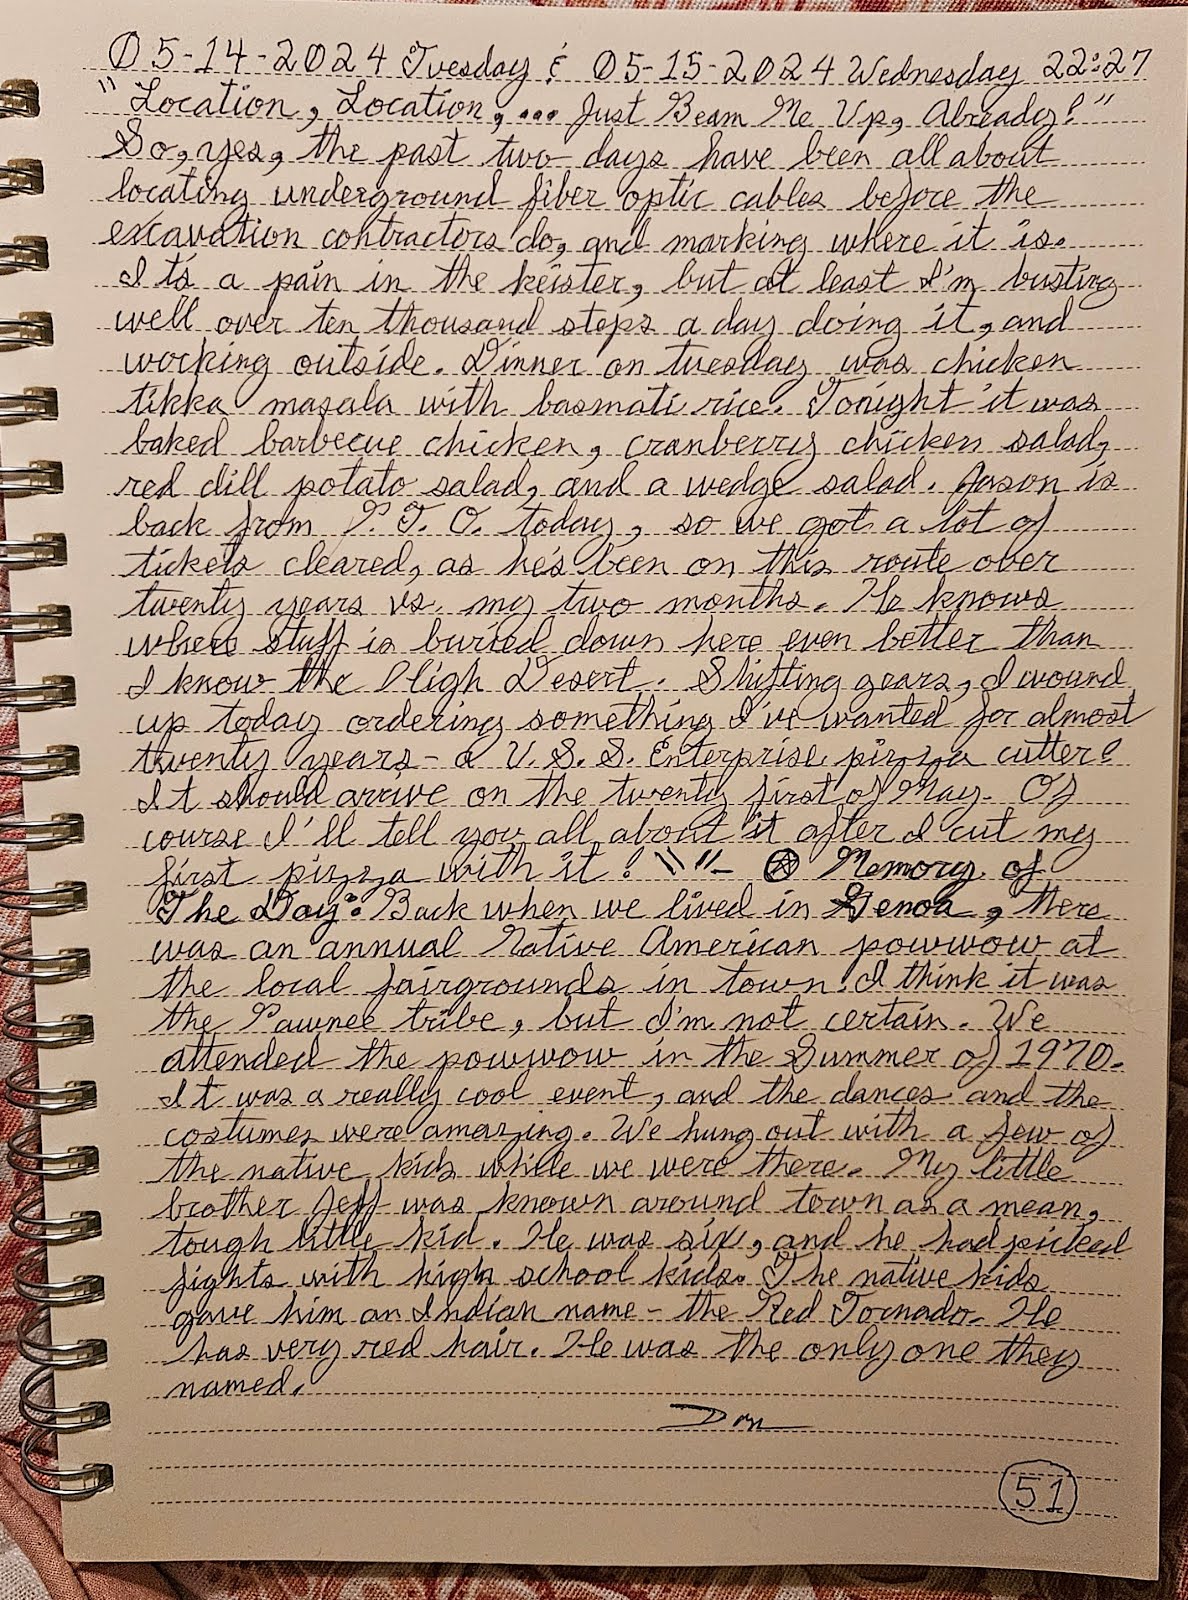 05-14-2024 Tuesday & 05-15-2024 Wednesday 22:27
"Location, Location, ... Just Beam Me Up, Already!"
So, yes, the past two days have been all about
locating underground fiber optic cables before the
excavation contractors do, and marking where it is.
It's a pain in the keister, but at least I'm busting
well over ten thousand steps a day doing it, and
working outside. Dinner on tuesday was chicken
tikka masala with basmati rice. Tonight it was
baked barbecue chicken, cranberry chicken salad,
red dill potato salad, and a wedge salad. Jason is
back from P.T.O. today, so we got a lot of
tickets cleared, as he's been on this route over
twenty years vs. my two months. He knows
where stuff is buried down here even better than
I know the High Desert. Shifting gears, I wound
up today ordering something I've wanted for almost
twenty years - a U.S.S. Enterprise pizza cutter!
It should arrive on the twenty first of May. Of
course I'll tell you all about it after I cut my
first pizza with it! \\ "- ⍟ Memory of
The Day: Back when we lived in Genoa, there
was an annual Native American powwow at
the local fairgrounds in town. I think it was
the Pawnee tribe, but I'm not certain. We
attended the powwow in the Summer of 1970.
It was a really cool event, and the dances and the
costumes were amazing. We hung out with a few of
the native kids while we were there. My little
brother Jeff was known around town as a mean,
tough little kid. He was six, and he had picked
fights with high school kids. The native kids
gave him an Indian name - the Red Tornado. He
has very red hair. He was the only one they
named.
Don
51